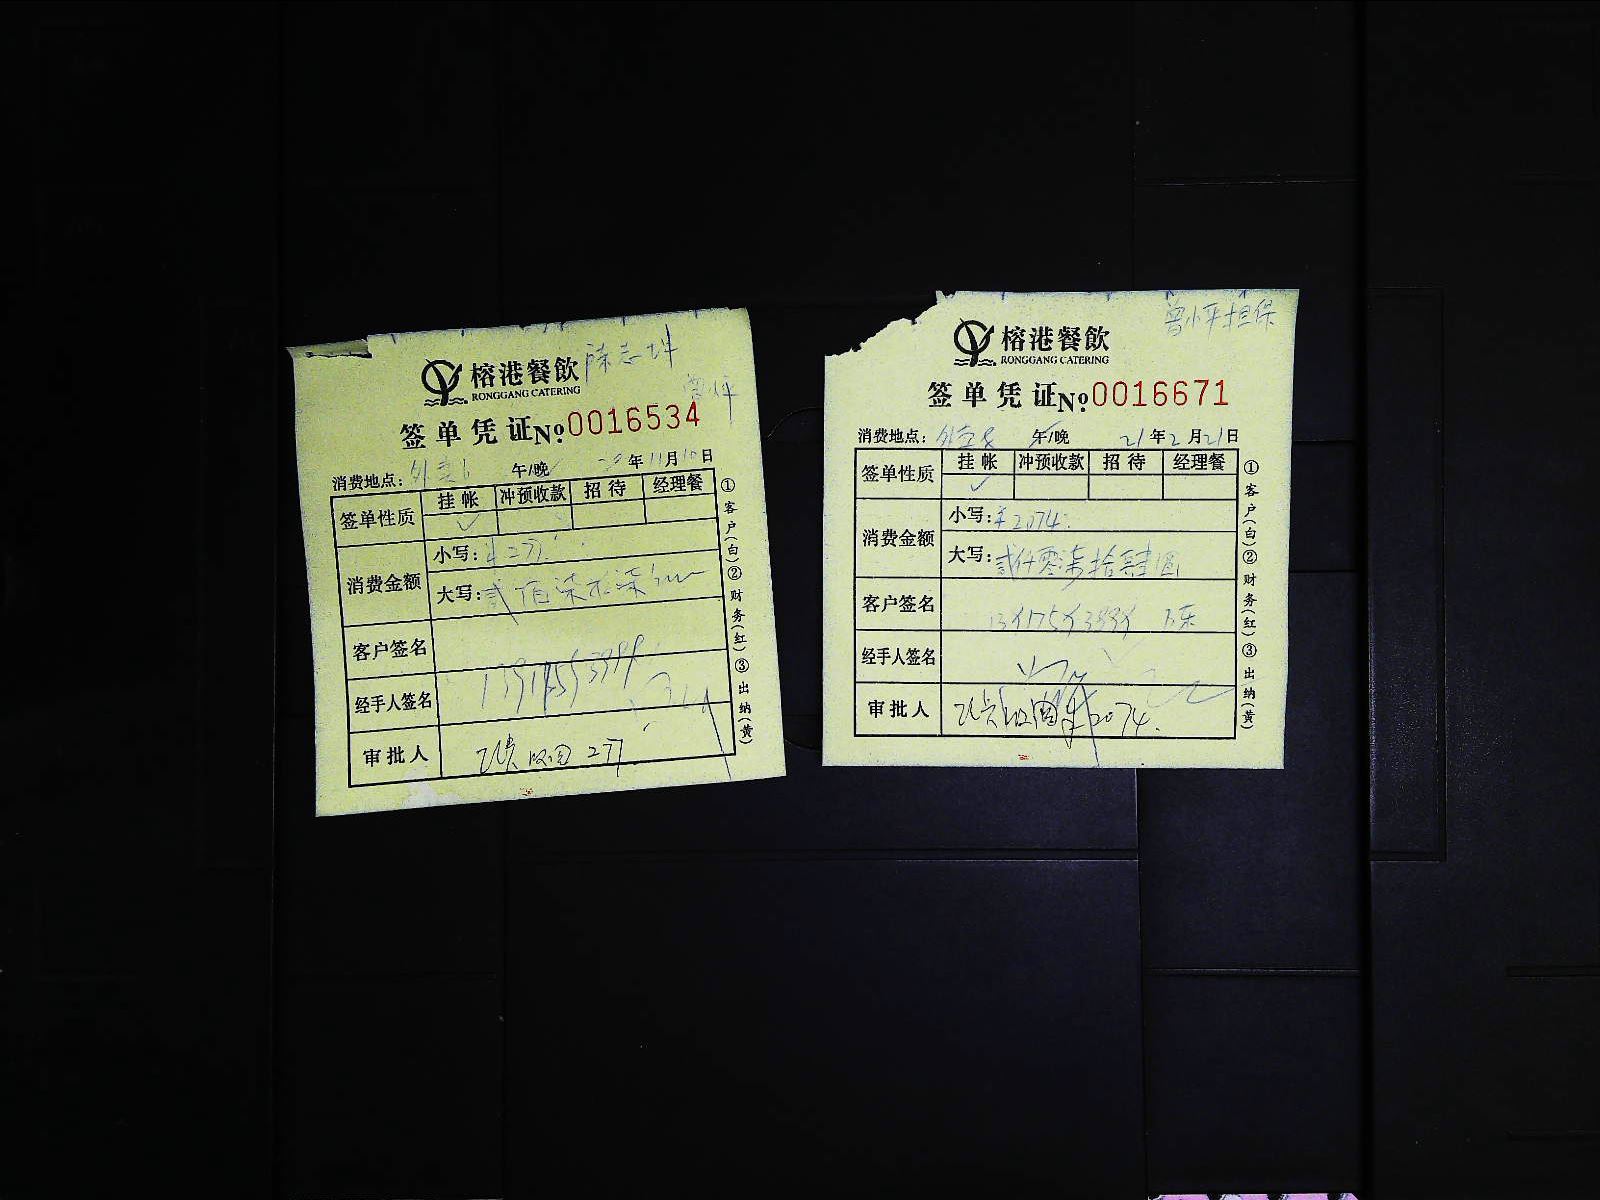 榕港餐飲 陈志坤
RONGGANG CATERING
签单凭证 №0016534
消费地点: 外卖 午/晚 年11月10日
签单性质 挂帐 冲预收款 招待 经理餐
✓
消费金额
小写: ¥277
大写: 贰佰柒拾柒
客户签名
经手人签名
审批人 277
①客户(白)②财务(红)③出纳(黄)
曾小平担保
榕港餐飲
RONGGANG CATERING
签单凭证 №0016671
消费地点: 午/晚 21年2月21日
签单性质 挂帐 冲预收款 招待 经理餐
✓
消费金额
小写: ¥2074
大写: 贰仟零柒拾肆圆
客户签名
经手人签名
审批人 ¥2074
①客户(白)②财务(红)③出纳(黄)